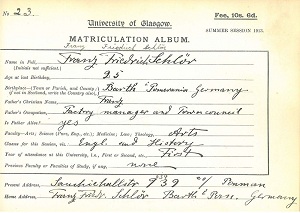 No. 23.
Fee, 10s. 6d.
University of Glasgow.
MATRICULATION ALBUM.
SUMMER SESSION 1913.
Franz Friedrich Schlör
Name in Full, Franz Friedrich Schlör
(Initials not sufficient).
Age at last Birthday, 25
Birthplace—(Town or Parish, and County; Barth Pomerania Germany
if not in Scotland, write the Country also).
Father's Christian Name, Franz
Father's Occupation, Factory manager and Towncouncil
Is Father Alive? yes
Faculty—Arts, Science (Pure, Eng., etc.); Medicine; Law; Theology, Arts
Classes for this Session, viz.: Engl. and History
Year of attendance at this University, i.e., First or Second, etc., First
Previous Faculty or Faculties of Study, if any, none
Present Address, Sauchiehallstr 939 c/o Penman
Home Address, Franz Friedr. Schlör Barth Germany